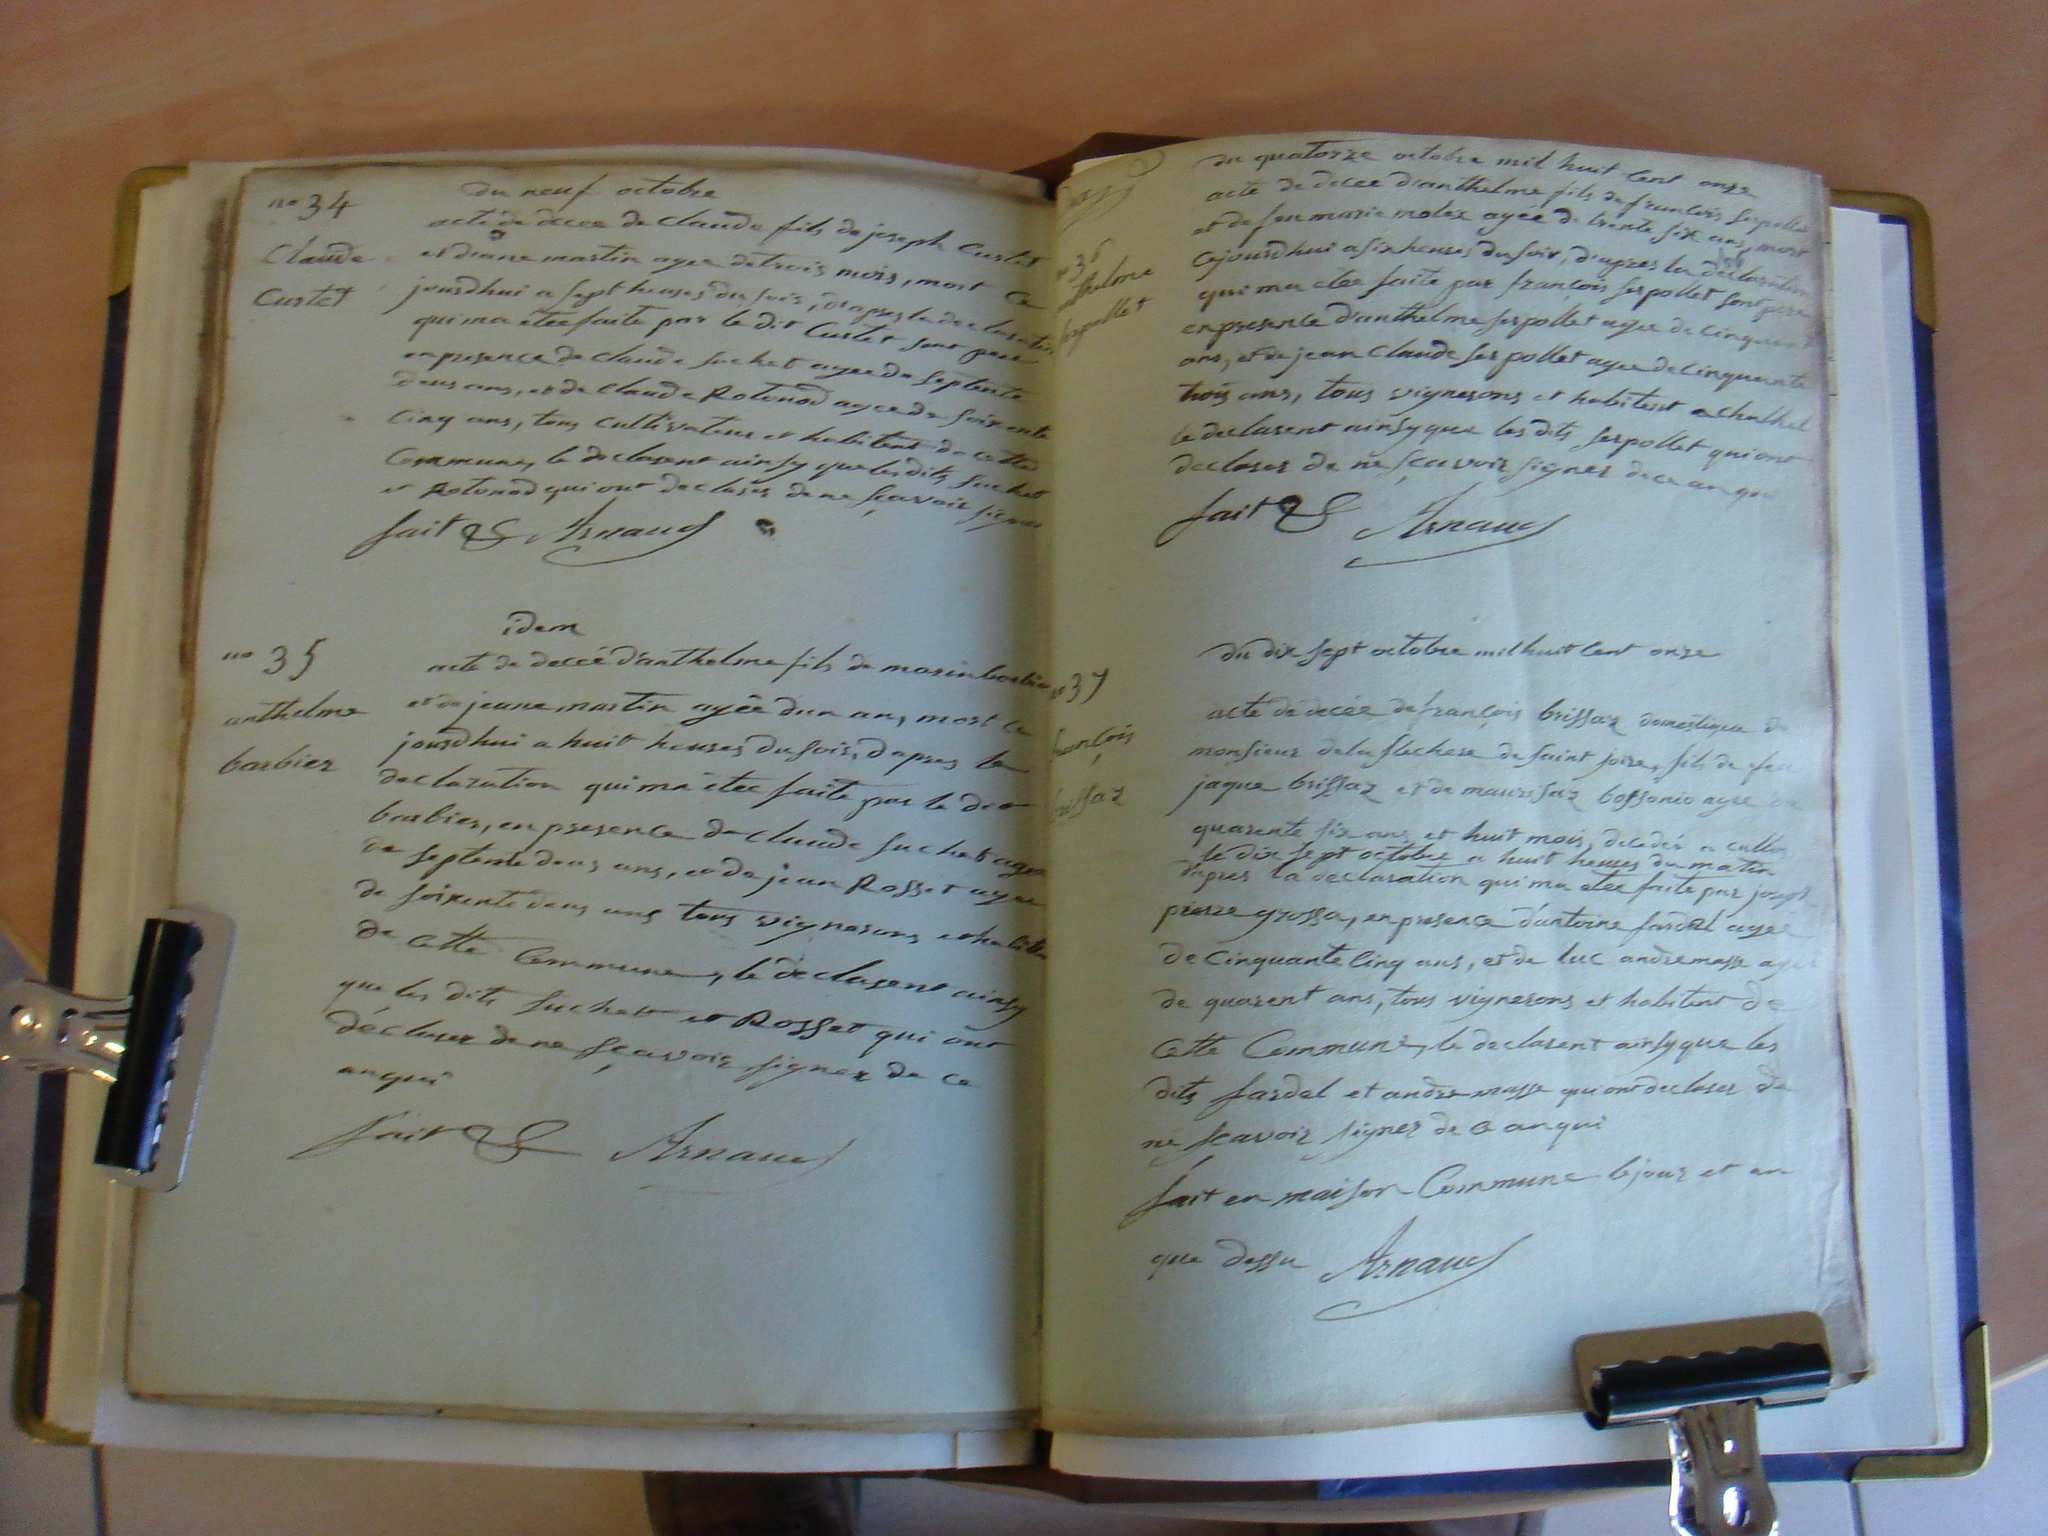 no 34
Claude
Custet
du neuf octobre
acte de décée de Claude fils de joseph Custet
et diane martin agee de trois mois, mort ce
jourdhui a sept heures du soir, d'apres la declaration
qui ma etee faite par le dit Custet sont pere
en presence de claude suchet agee de septente
deus ans, et de Claude Rotonod agee de soixente
Cinq ans, tous Cultivateur et habitent de cette
Commune, le declarent ainsy que les dits suchet
et Rotonod qui ont declarer de ne sçavoir signer
fait & Arnaud
no 35
anthelme
barbier
idem
acte de decée d'anthelme fils de marin barbier
et de jeanne martin agée dun ans, mort ce
jourdhui a huit heures du soir, d'apres la
declaration qui ma étee faite par le dit
barbier, en presence de claude suchet agee
de septente deus ans, et de jean Rosset agee
de soixente deus ans tous vignerons et habiten
de cette Commune, le déclarent ainsy
que les dits suchet et Rosset qui ont
déclarer de ne sçavoir signer de ce
enqui
fait & Arnaud
no 36
anthelme
serpollet
du quatorze octobre mil huit cent onze
acte de decée d'anthelme fils de francois serpollet
et de feu marie molex agée de trente six ans, mort
cejourdhui a six heures du soir, d'apres la déclaration
qui ma etee faite par françois serpollet sont pere
en presence d'anthelme serpollet agee de cinquent
ans, et de jean Claude serpollet agee de cinquante
trois ans, tous vignerons et habitent a
le declarent ainsy que les dits serpollet qui ont
declarer de ne sçavoir signer de ce enqui
fait & Arnaud
no 37
françois
brissaz
du dix sept octobre mil huit cent onze
acte de decée de françois brissaz domestique de
monsieur de la flechere de saint joire, fils de feu
jaque brissaz et de maurisaz bossonio agee de
quarente six ans et huit mois, decedés a culloz
le dix sept octobre a huit heures du matin
d'apres la declaration qui ma etee faite par joseph
pierre grossa, en presence d'antoine fardel agée
de cinquante cinq ans, et de luc andremasse agee
de quarent ans, tous vignerons et habitent de
Cette Commune, le declarent ainsy que les
dits fardel et andremasse qui ont declarer de
ne scavoir signer de ce enqui
fait en maison Commune le jour et en
que dessu Arnaud